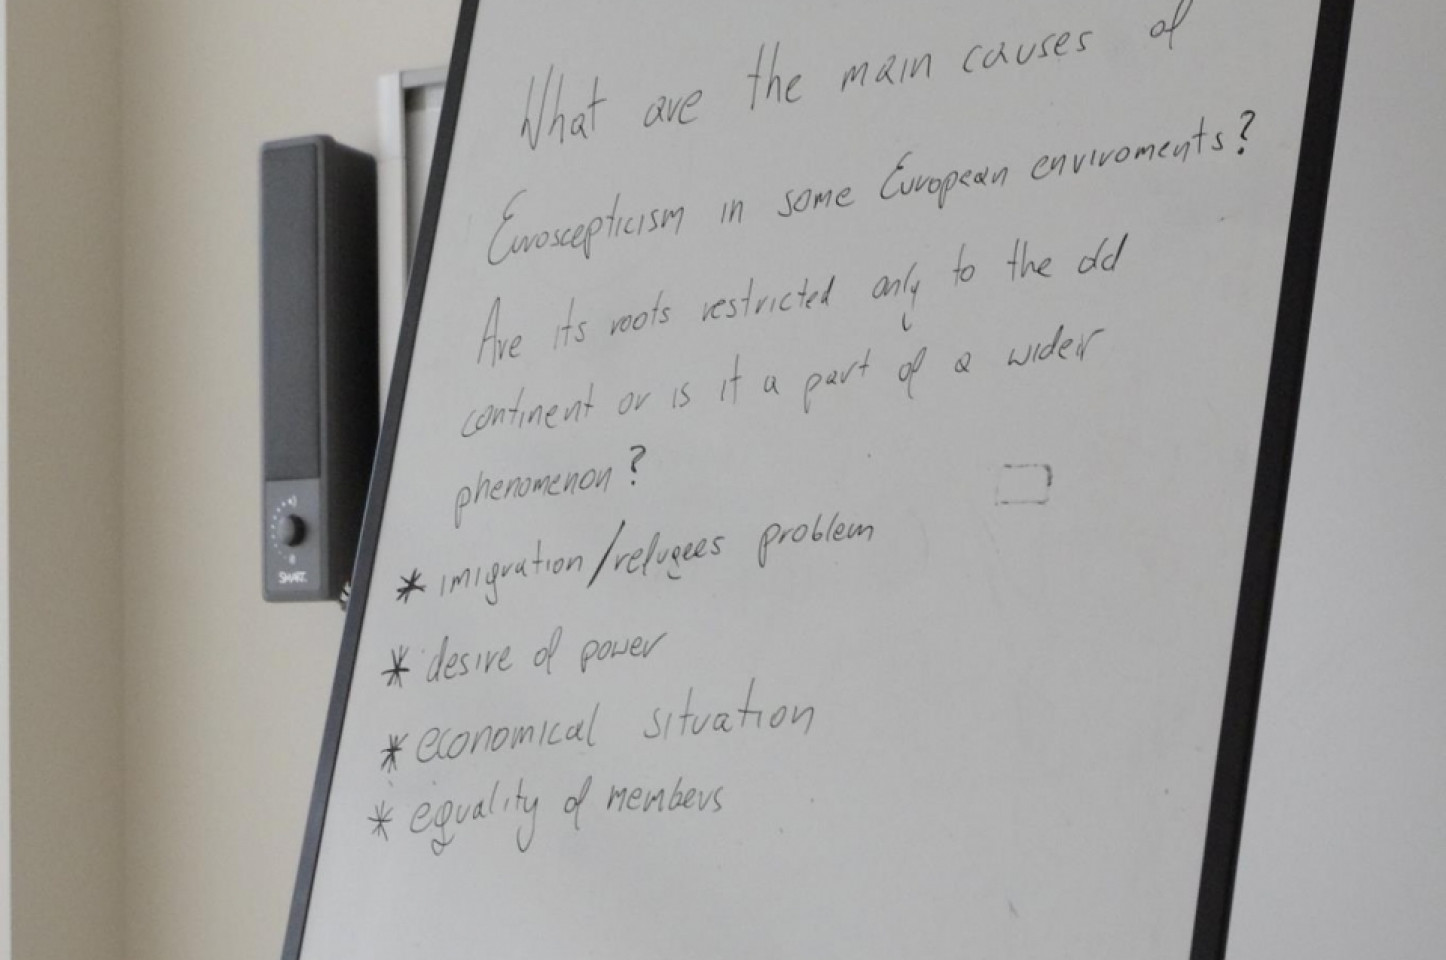 What are the main causes of
Euroscepticism in some European enviroments?
Are its roots restricted only to the old
continent or is it a part of a wider
phenomenon?
* imigration/refugees problem
* desire of power
* economical situation
* equality of members
SMART